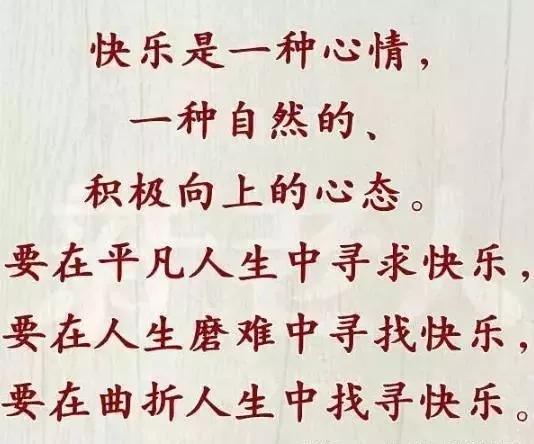 快乐是一种心情，
一种自然的、
积极向上的心态。
要在平凡人生中寻求快乐，
要在人生磨难中寻找快乐，
要在曲折人生中找寻快乐。